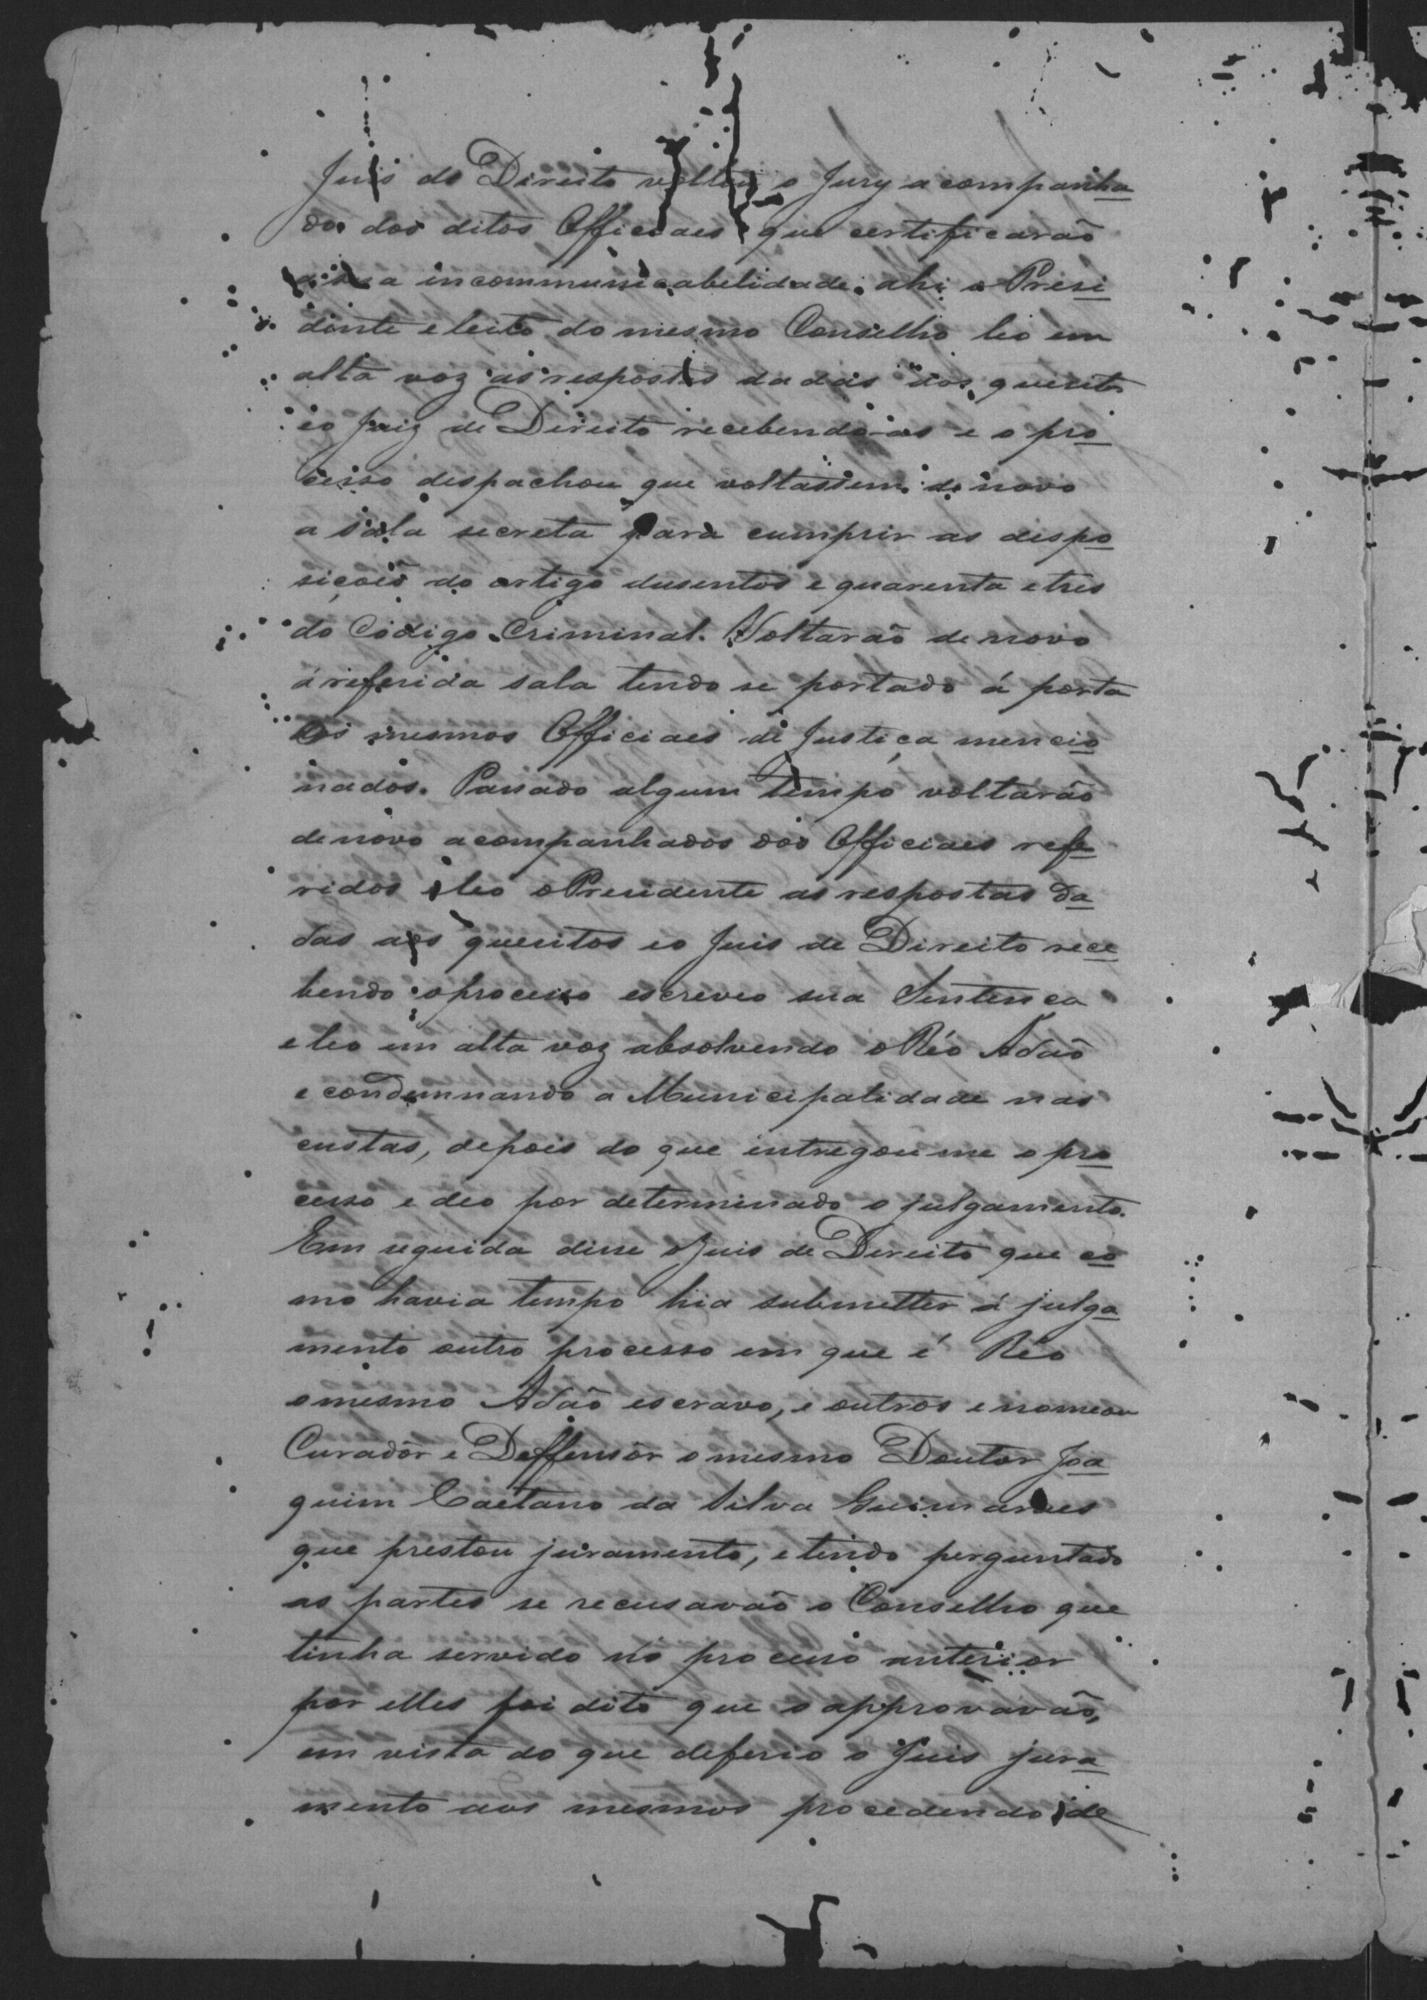 Juis de Direito voltou o Jury acompanha
do dos ditos Officiaes que certificarão
a sua incommunicabelidade. ahi o Presi
dente eleito do mesmo Conselho leo em
alta voz as respostas dadas aos quesitos
e o Juiz de Direito recebendo-as e o pro
cesso despachou que voltassem de novo
a sala secreta para cumprir as dispo
sicois do artigo dusentos e quarenta e tres
do Codigo Criminal. Voltarão de novo
á referida sala tendo se portado á porta
os mesmos Officiaes de Justiça mencio
nados. Passado algum tempo voltarão
de novo acompanhados dos Officiaes refe
ridos e leo o Presidente as respostas da
das aos quesitos e o Juis de Direito rece
bendo o processo escreveo sua Sentença
e leo em alta voz absolvendo o Réo Adão
e condemnando a Municipalidade nas
custas, depois do que entregou me o pro
cesso e deo por determinado o julgamento.
Em seguida disse o Juis de Direito que co
mo havia tempo hia submetter á julga
mento outro processo em que é Réo
o mesmo Adão escravo, e outros e nomeou
Curador e Deffensor o mesmo Doutor Joa
quim Caetano da Silva Guimaraes
que prestou juramento, e tendo perguntado
as partes se recusavão o Conselho que
tinha servido no processo anterior
por elles foi dito que o approvavão,
em vista do que deferio o Juis jura
mento aos mesmos procedendo de